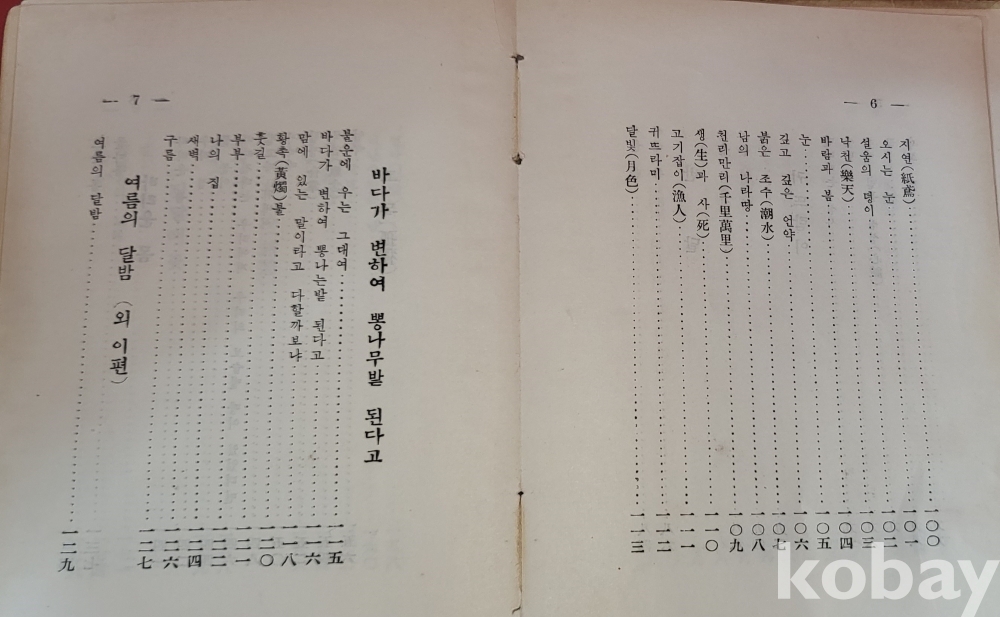 — 6 —
지연(紙鳶) 一〇〇
오시는 눈 一〇一
설움의 덩이 一〇二
낙천(樂天) 一〇三
바람과 봄 一〇四
눈 一〇五
깊고 깊은 언약 一〇六
붉은 조수(潮水) 一〇七
남의 나라땅 一〇八
천리만리(千里萬里) 一〇九
생(生)과 사(死) 一一〇
고기잡이(漁人) 一一一
귀뜨라미 一一二
달빛(月色) 一一三
— 7 —
바다가 변하여 뽕나무밭 된다고
불운에 우는 그대여 一一五
바다가 변하여 뽕나는밭 된다고 一一六
맘에 있는 말이라고 다할까보냐 一一八
황촉(黃燭)불 一二〇
훗길 一二一
부부 一二二
나의 집 一二四
새벽 一二六
구름 一二七
여름의 달밤 (외 이편)
여름의 달밤 一二九
kobay